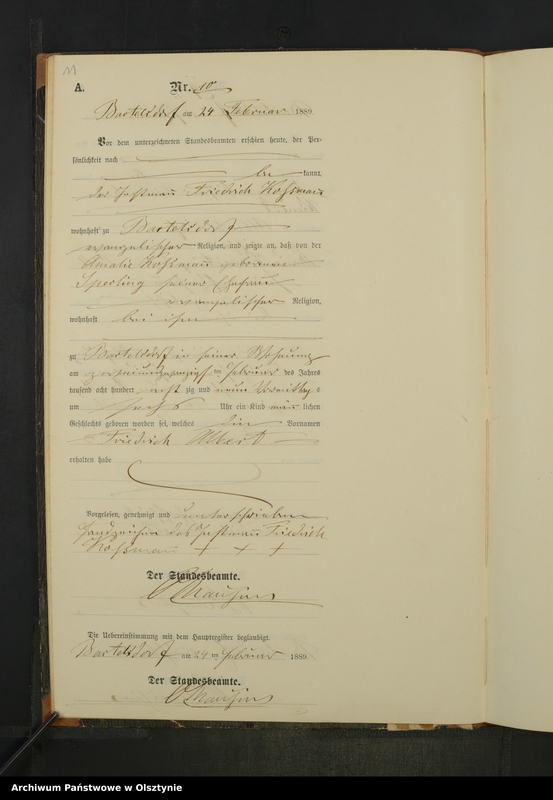 11
A.
Nr. 10
Bartelsdorf am 24 Februar 1889
Vor dem unterzeichneten Standesbeamten erschien heute, der Per-
sönlichkeit nach
be kannt,
der Instmann Friedrich Koßmann
wohnhaft zu Bartelsdorf
evangelischer Religion, und zeigte an, daß von der
Amalie Koßmann geborenen
Sperling seiner Ehefrau
evangelischer Religion,
wohnhaft bei ihm
zu Bartelsdorf in seiner Wohnung
am zweiundzwanzigsten Februar des Jahres
tausend acht hundert acht zig und neun Vormittags
um sechs Uhr ein Kind männ lichen
Geschlechts geboren worden sei, welches die Vornamen
Friedrich Albert
erhalten habe
Vorgelesen, genehmigt und unterschrieben
Handzeichen des Instmann Friedrich
Koßmann + + +
Der Standesbeamte.
Die Uebereinstimmung mit dem Hauptregister beglaubigt.
Bartelsdorf am 24 ten Februar 1889
Der Standesbeamte.
Archiwum Państwowe w Olsztynie